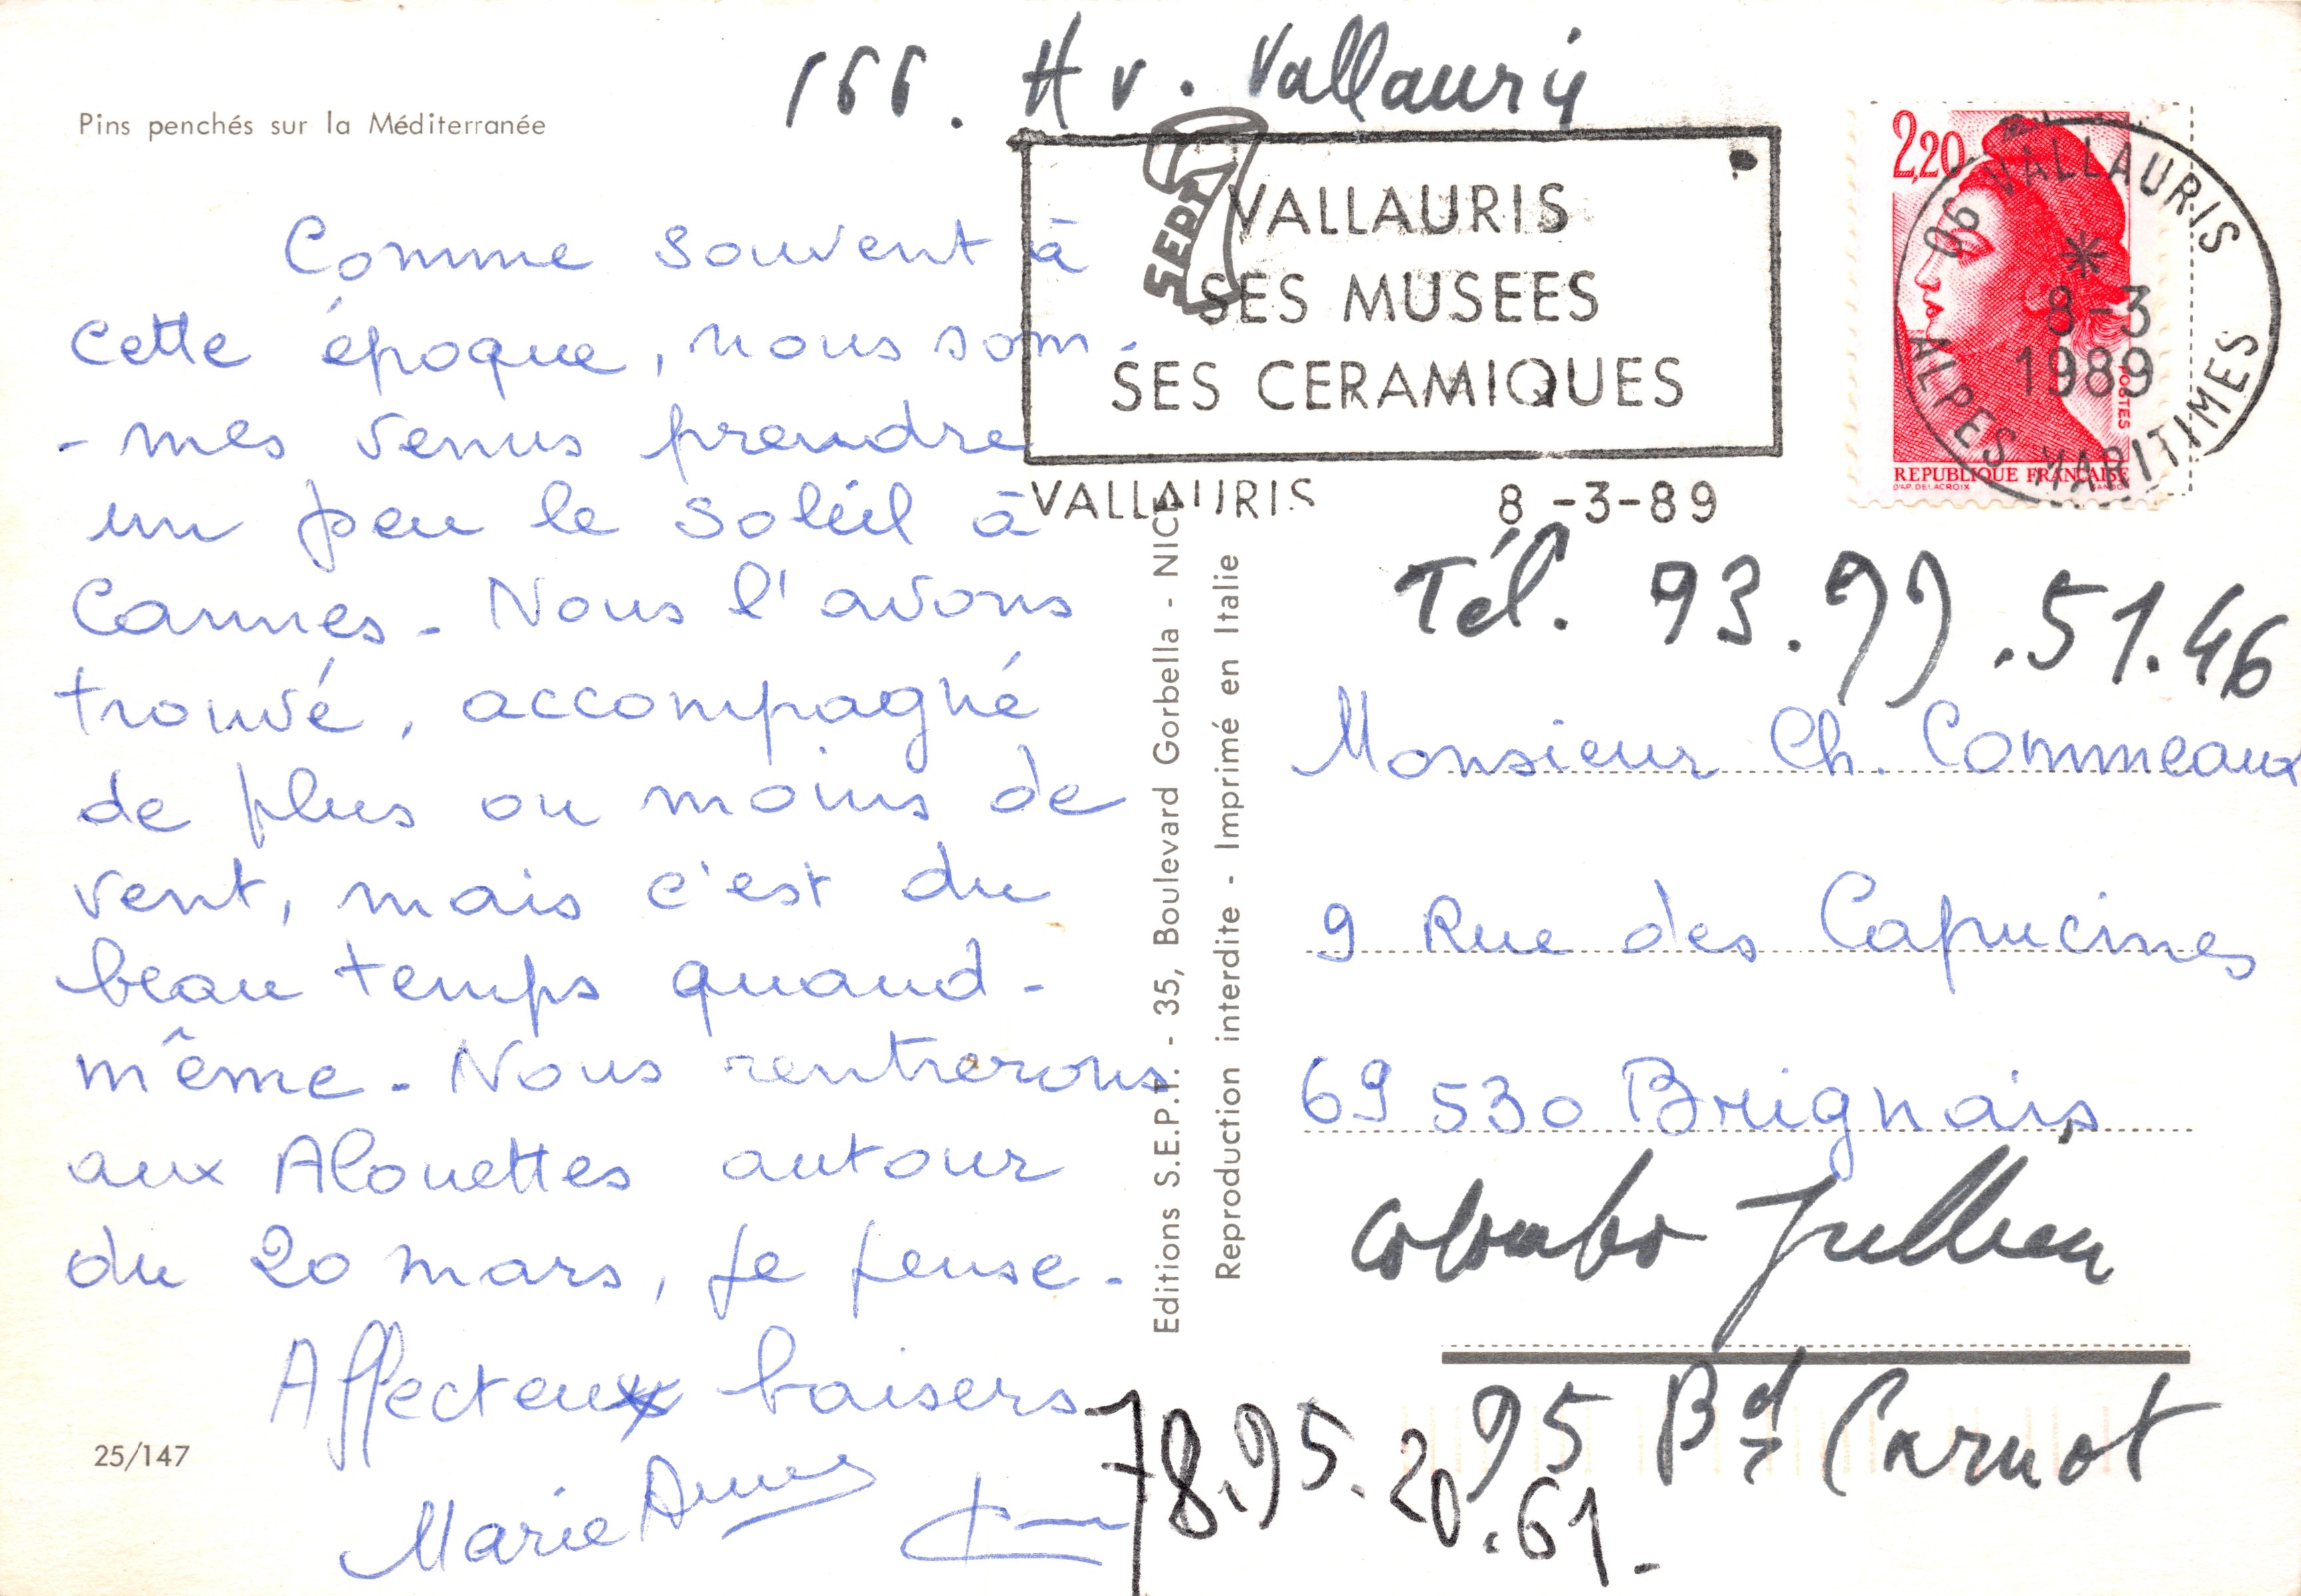 166. Av. Vallauris
Pins penchés sur la Méditerranée
Comme souvent à
cette époque, nous som-
-mes venus prendre
un peu le soleil à
Cannes - Nous l'avons
trouvé, accompagné
de plus ou moins de
vent, mais c'est du
beau temps quand-
même - Nous rentrerons
aux Alouettes autour
du 20 mars, je pense -
Affecteux baisers
Marie
25/147
SEPT
VALLAURIS
SES MUSEES
SES CERAMIQUES
VALLAURIS 8-3-89
2,20
REPUBLIQUE FRANÇAISE
POSTES
D'AP. DELACROIX GANDON
06 VALLAURIS
*
8-3
1989
ALPES MARITIMES
Editions S.E.P.T. - 35, Boulevard Gorbella - NICE
Reproduction interdite - Imprimé en Italie
Tél. 93.99.51.46
Monsieur Ch. Commeaux
9 Rue des Capucines
69530 Brignais
Colombo Jullien
95 Bd Carnot
78.95.20.61.